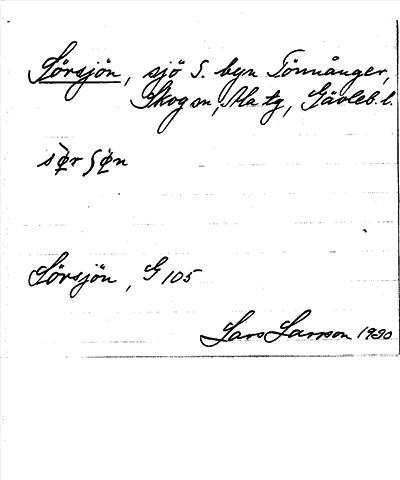 Sörsjön, sjö S. byn Tönnånger,
Skog sn, Ala tg, Gävleb. l.
Sörsjön, G 105
Lars Larsson 1930